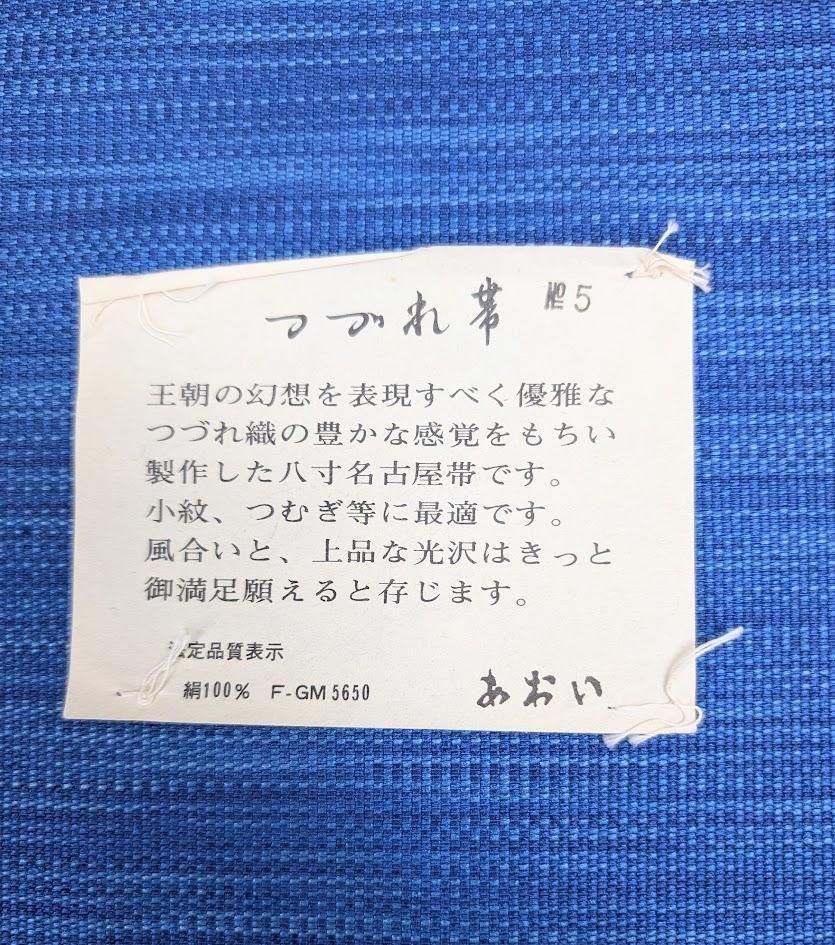 つづれ帯 №5
王朝の幻想を表現すべく優雅な
つづれ織の豊かな感覚をもちい
製作した八寸名古屋帯です。
小紋、つむぎ等に最適です。
風合いと、上品な光沢はきっと
御満足願えると存じます。
法定品質表示
絹100% F-GM5650
あおい